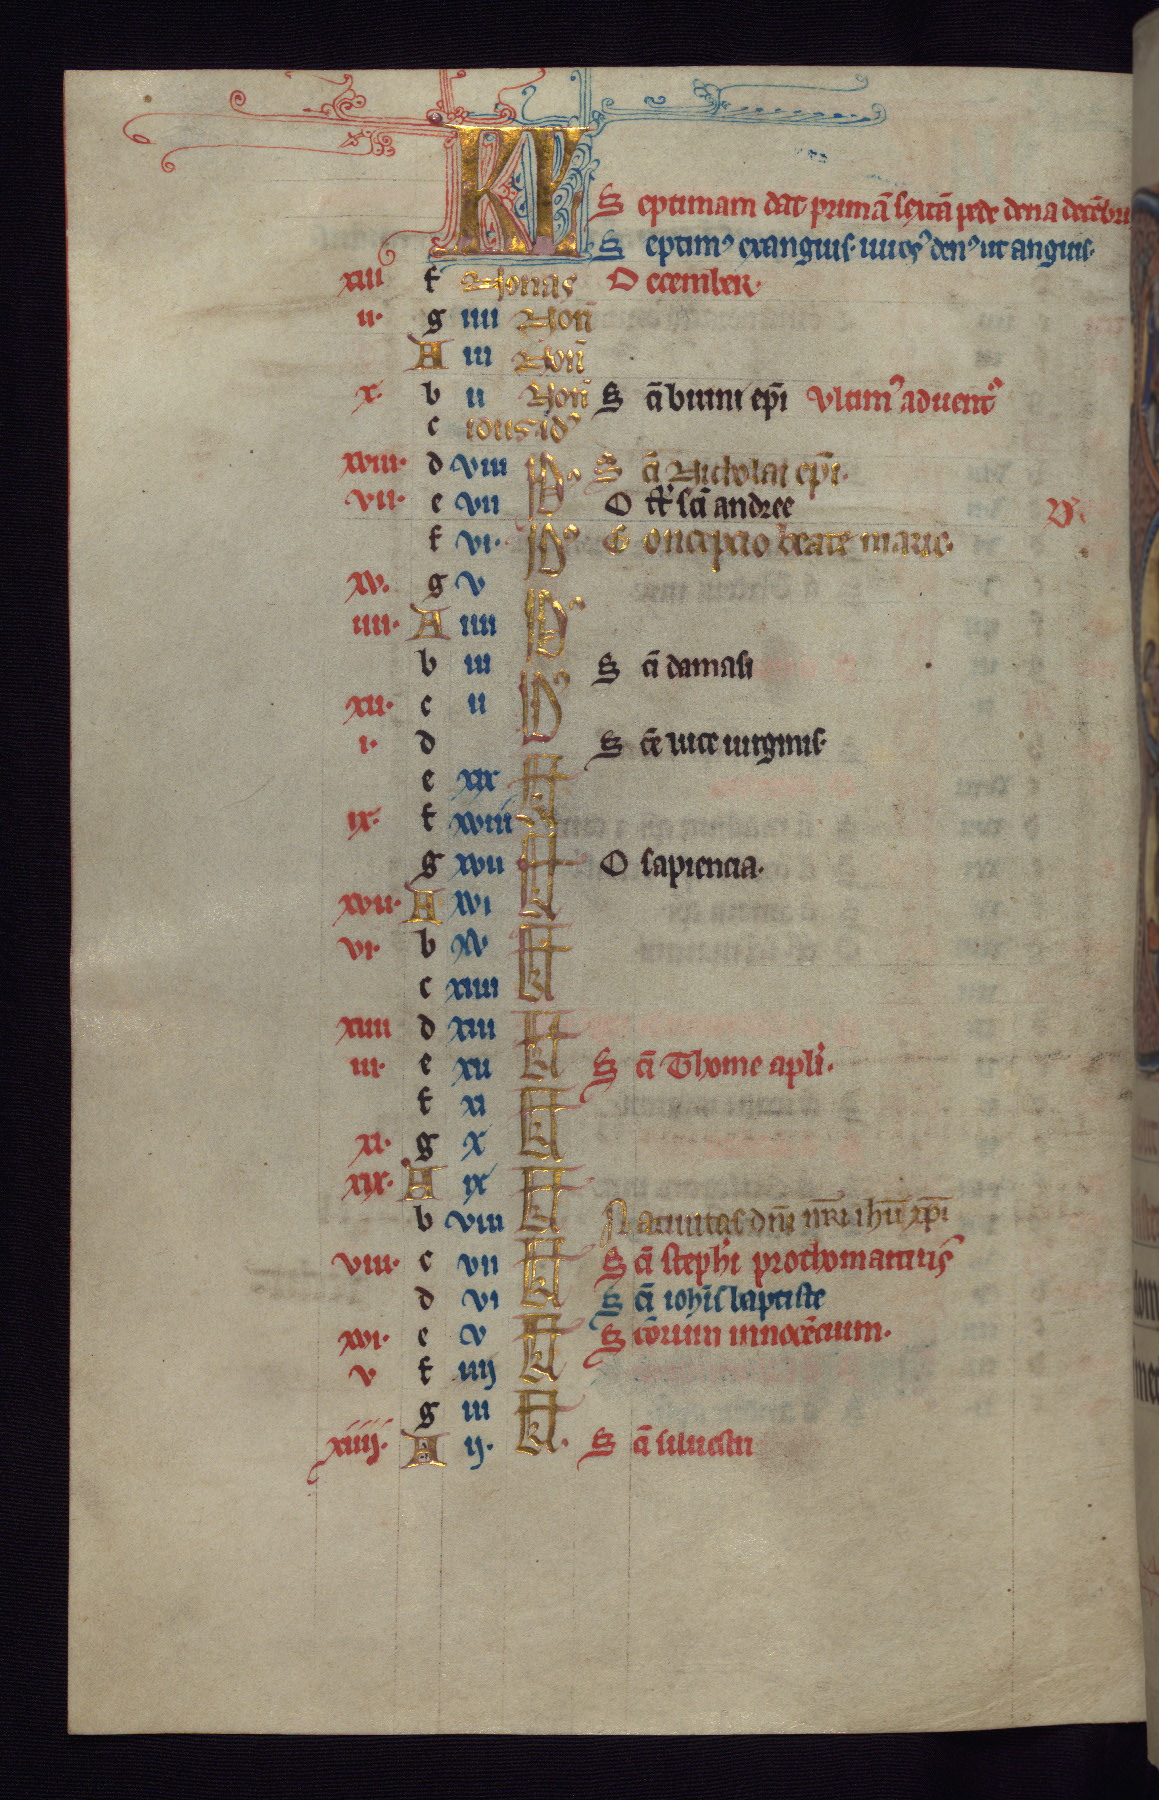 KL
Septimam dat primā sextā pede dena decēbri
Septim⁹ exanguis uiuꝰ den⁹ ut anguis.
xiii f Nonas December.
ii. g iiii Non̄
A iii Non̄
x. b ii Non̄ S cī birini ep̄i vltim⁹ aduent⁹
c idus id⁹
xviii. d viii Id⁹ S cī Nicholai ep̄i.
vii. e vii O cť scī andree
f vi. Id⁹ Concepcio beate marie.
xv. g v
iiii. A iiii Id⁹
b iii S cī damasi
xii. c ii Id⁹
i. d S cē lucie uirginis.
e xix kl
ix. f xviii
g xvii kl O sapiencia.
xvii. A xvi
vi. b xv kl
c xiiii
xiiii d xiii kl
iii. e xii S cī Thome apl̄i.
f xi kl
xi. g x
xix. A ix kl
b viii Natiuitas dn̄i nr̄i ihū xp̄i
viii. c vii kl S cī steph̄i prothomartiris
d vi S cī ioh̄is baptiste
xvi. e v kl S cōrum innocēcium.
v f iiij
g iii kl
xiiij. A ij. S cī siluestri